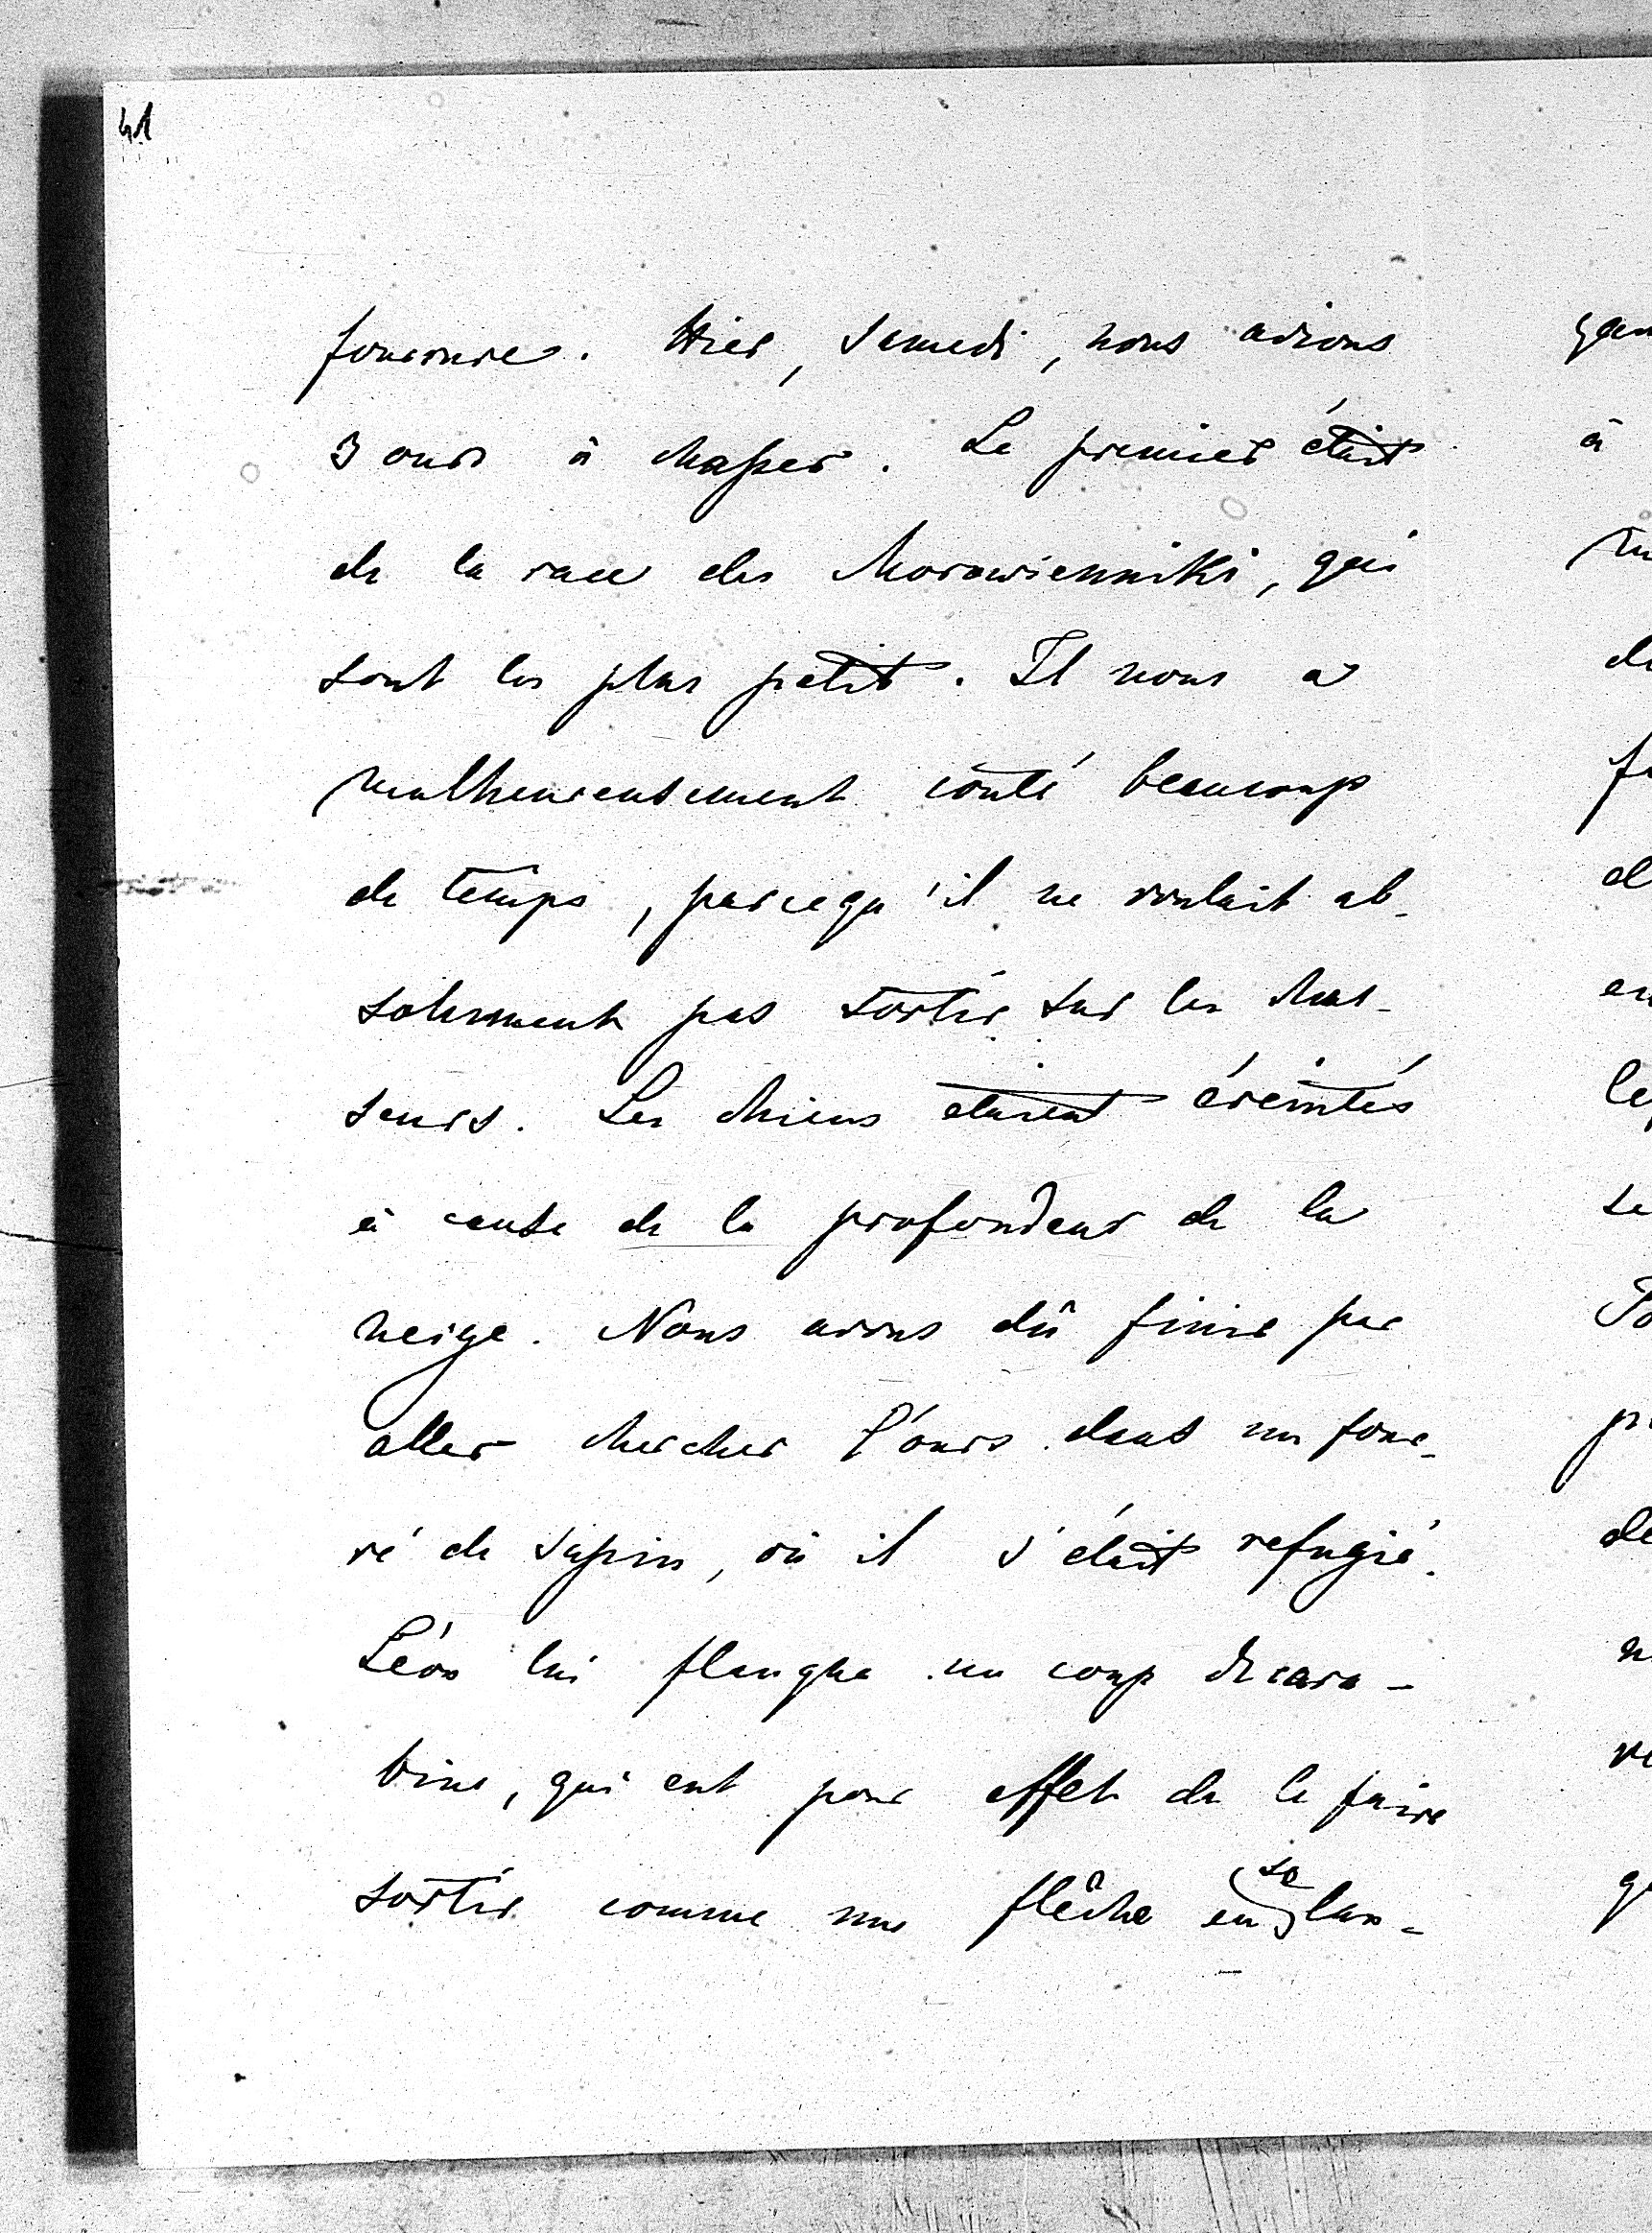 41
fourrure. Hier, samedi, nous avions
3 ours à chasser. Le premier était
de la race des Morawienniki, qui
sont les plus petit. Il nous a
malheureusement coûté beaucoup
de temps, parcequ'il ne voulait ab-
solument pas sortir sur les chas-
seurs. Les chiens étaient éreintés
à cause de la profondeur de la
neige. Nous avons dû finir par
aller chercher l'ours dans un four-
ré de sapins, où il s'était refugié.
Léon lui flanqua un coup de cara-
bine, qui eut pour effet de le faire
sortir comme une flêche en se lan-